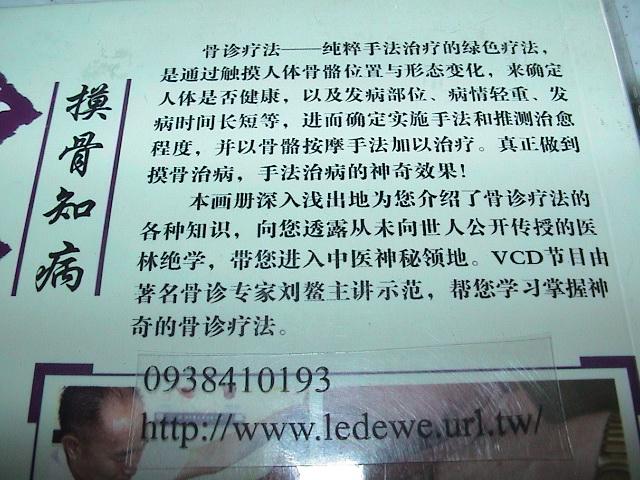 摸骨知病
骨诊疗法——纯粹手法治疗的绿色疗法，
是通过触摸人体骨骼位置与形态变化，来确定
人体是否健康，以及发病部位、病情轻重、发
病时间长短等，进而确定实施手法和推测治愈
程度，并以骨骼按摩手法加以治疗。真正做到
摸骨治病，手法治病的神奇效果！
本画册深入浅出地为您介绍了骨诊疗法的
各种知识，向您透露从未向世人公开传授的医
林绝学，带您进入中医神秘领地。VCD节目由
著名骨诊专家刘鳌主讲示范，帮您学习掌握神
奇的骨诊疗法。
0938410193
http://www.ledewe.url.tw/